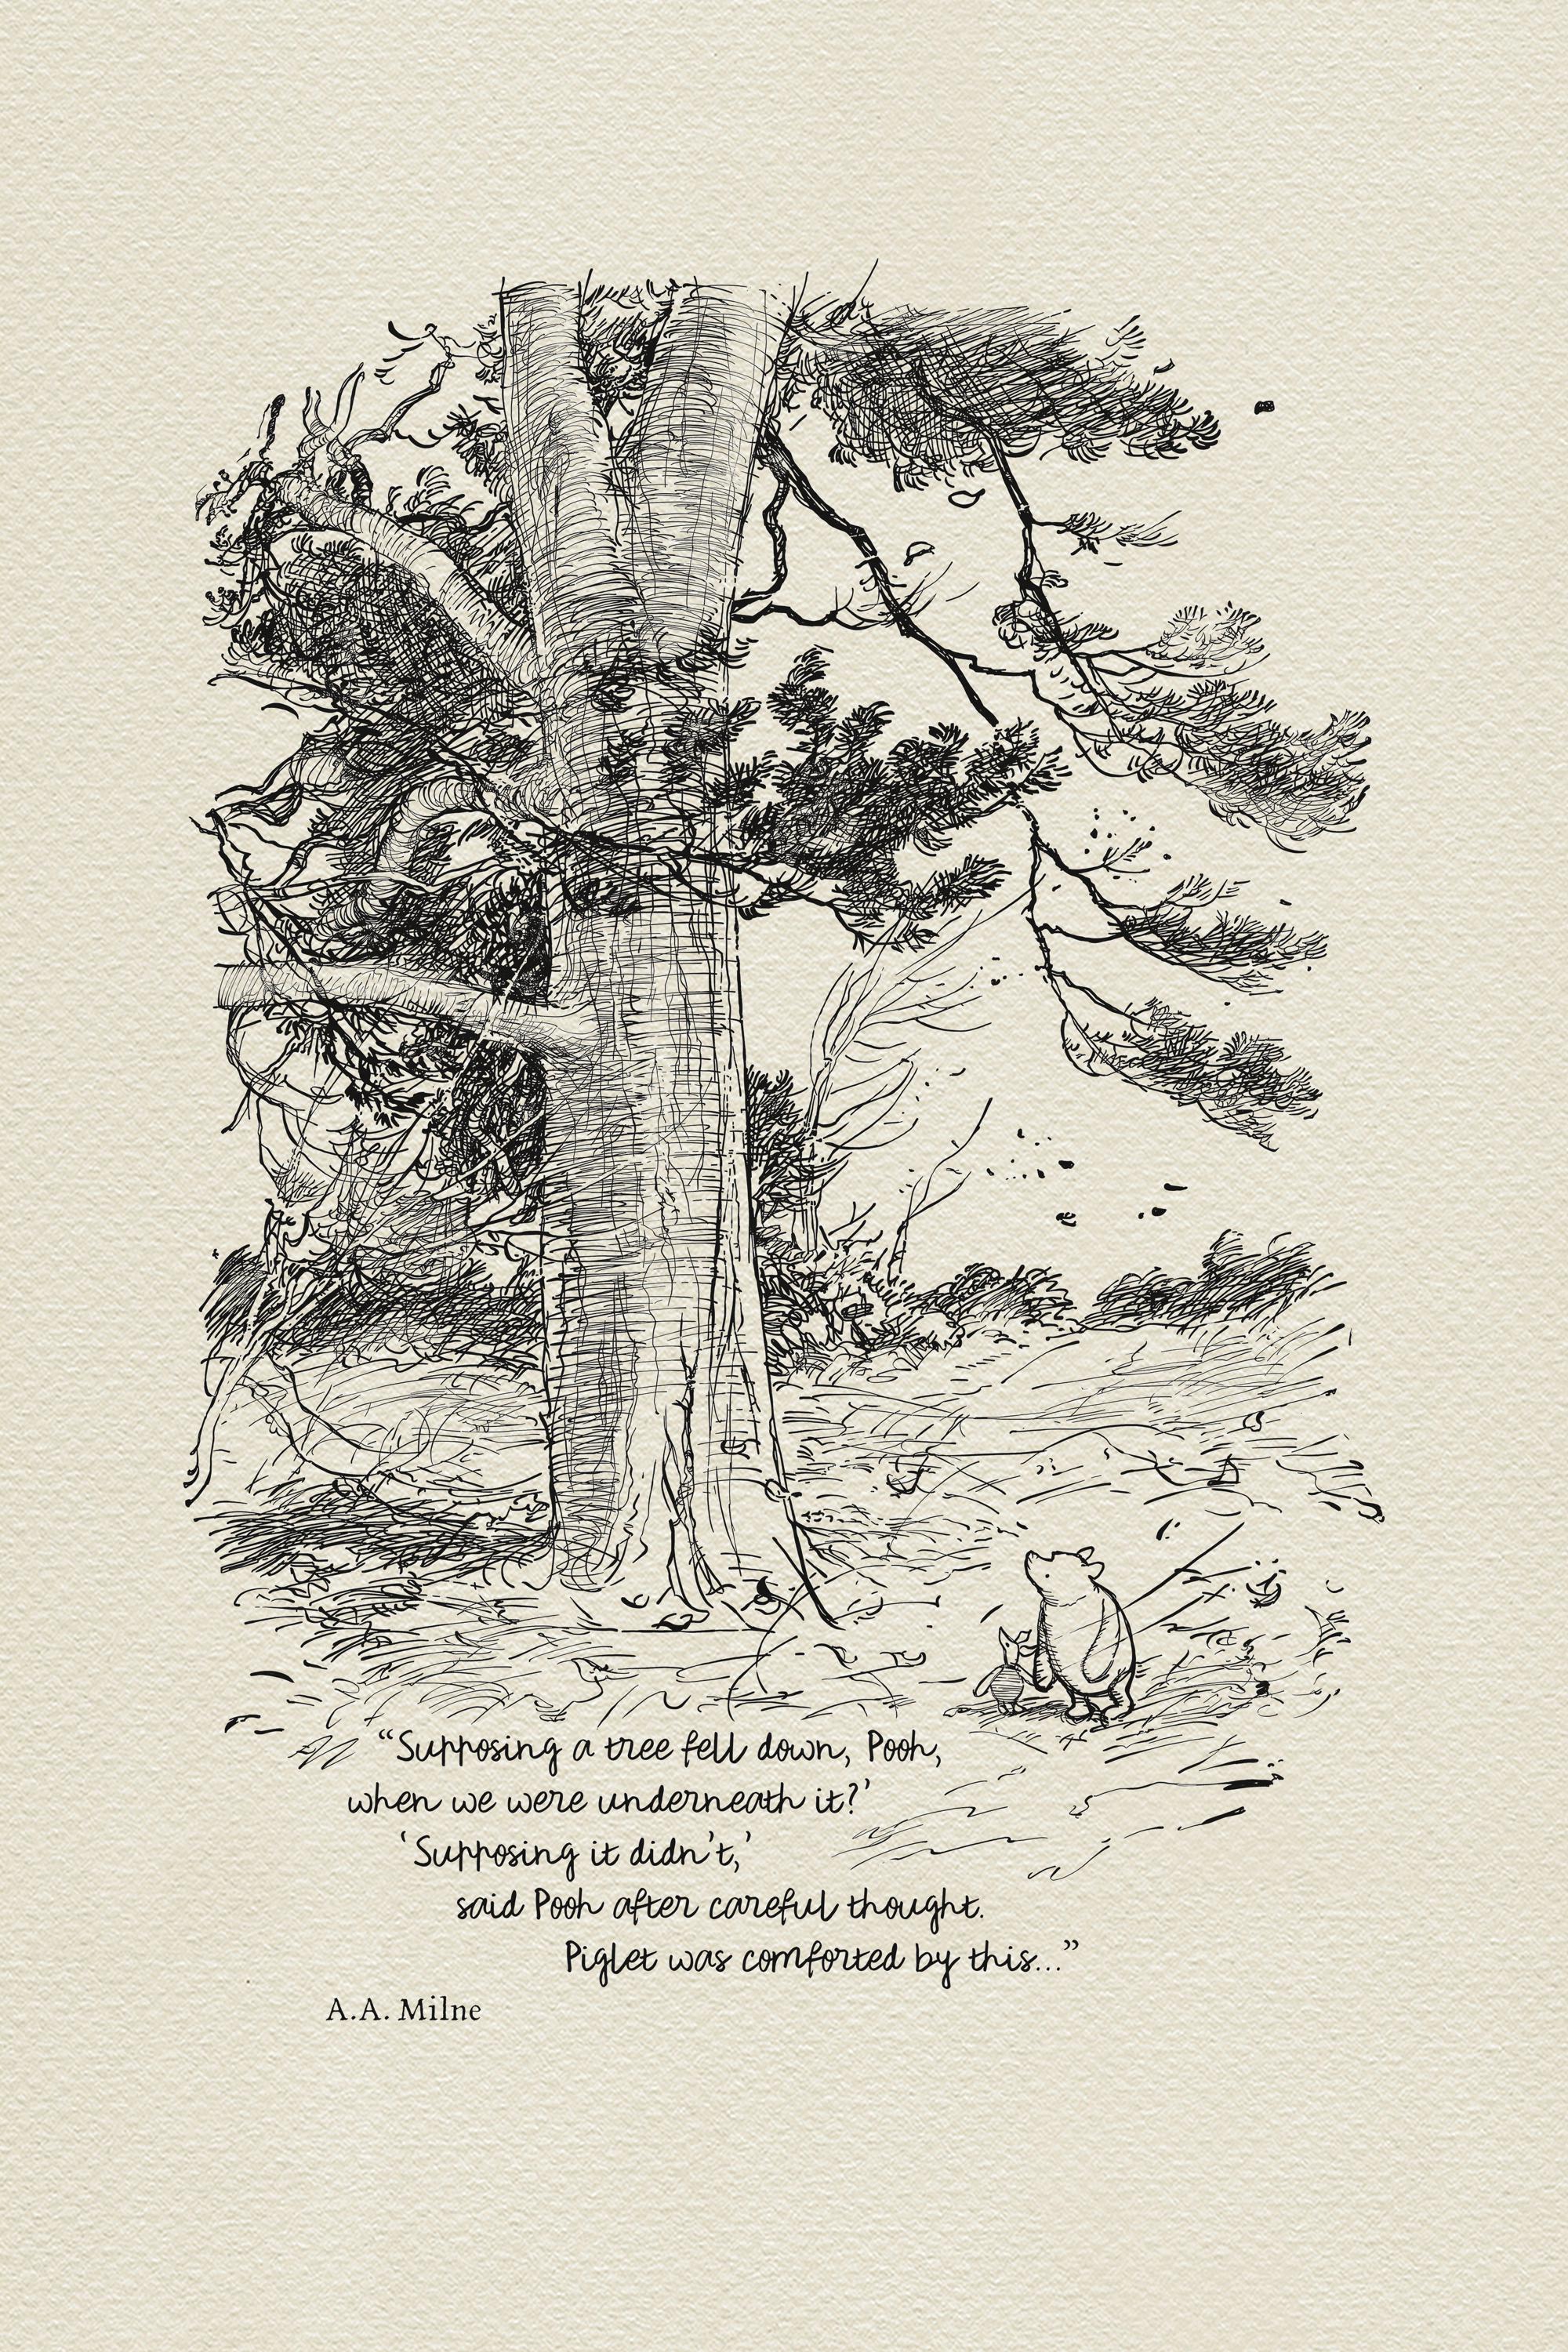 “Supposing a tree fell down, Pooh,
when we were underneath it?’
‘Supposing it didn’t,’
said Pooh after careful thought.
Piglet was comforted by this...”
A.A. Milne